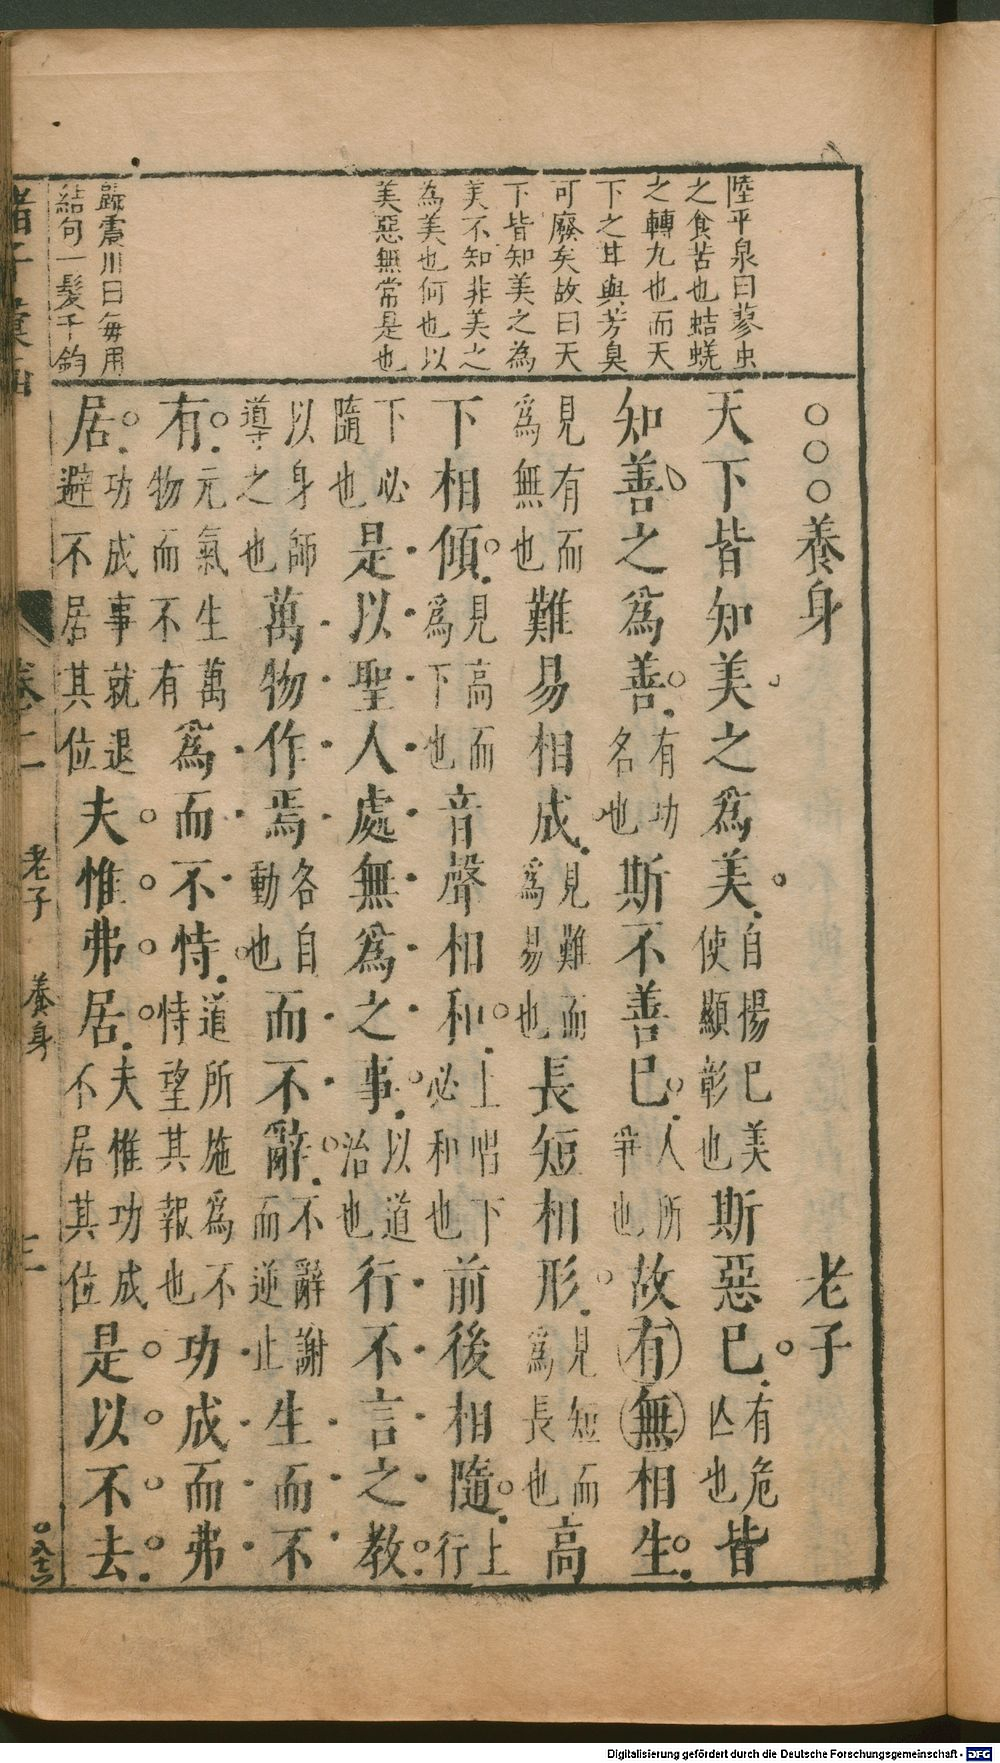 陸平泉曰蓼虫
之食苦也蛣蜣
之轉丸也而天
下之茸與芳臭
可廢矣故曰天
下皆知美之為
美不知非美之
為美也何也以
美惡無常是也
歸震川曰每用
結句一髮千鈞
○○○養身 老子
天下皆知美之爲美自揚己美使顯彰也斯惡已有危亾也皆
知善之爲善有功名也斯不善已人所爭也故有無相生
見有而爲無也難易相成見難而爲易也長短相形見短而爲長也高
下相傾見高而爲下也音聲相和上唱下必和也前後相隨上行
下必隨也是以聖人處無爲之事以道治也行不言之教
以身師導之也萬物作焉各自動也而不辭不辭謝而逆止生而不
有元氣生萬物而不有爲而不恃道所施爲不恃望其報也功成而弗
居功成事就退避不居其位夫惟弗居夫惟功成不居其位是以不去
諸子彙函
卷二
老子 養身
三
○八十六
Digitalisierung gefördert durch die Deutsche Forschungsgemeinschaft - DFG